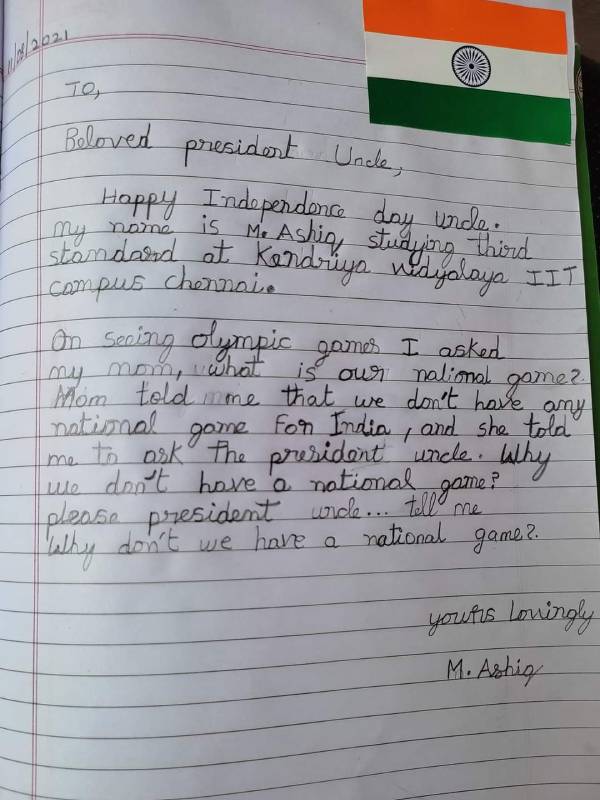 11/08/2021
TO,
Beloved president Uncle,
Happy Independence day uncle.
my name is M. Ashiq, studying third
standard at Kendriya vidyalaya IIT
campus chennai.
On seeing olympic games I asked
my mom, what is our national game?
Mom told me that we don't have any
national game For India, and she told
me to ask the president uncle. Why
we don't have a national game?
please president uncle... tell me
Why don't we have a national game?
yours lovingly
M. Ashiq